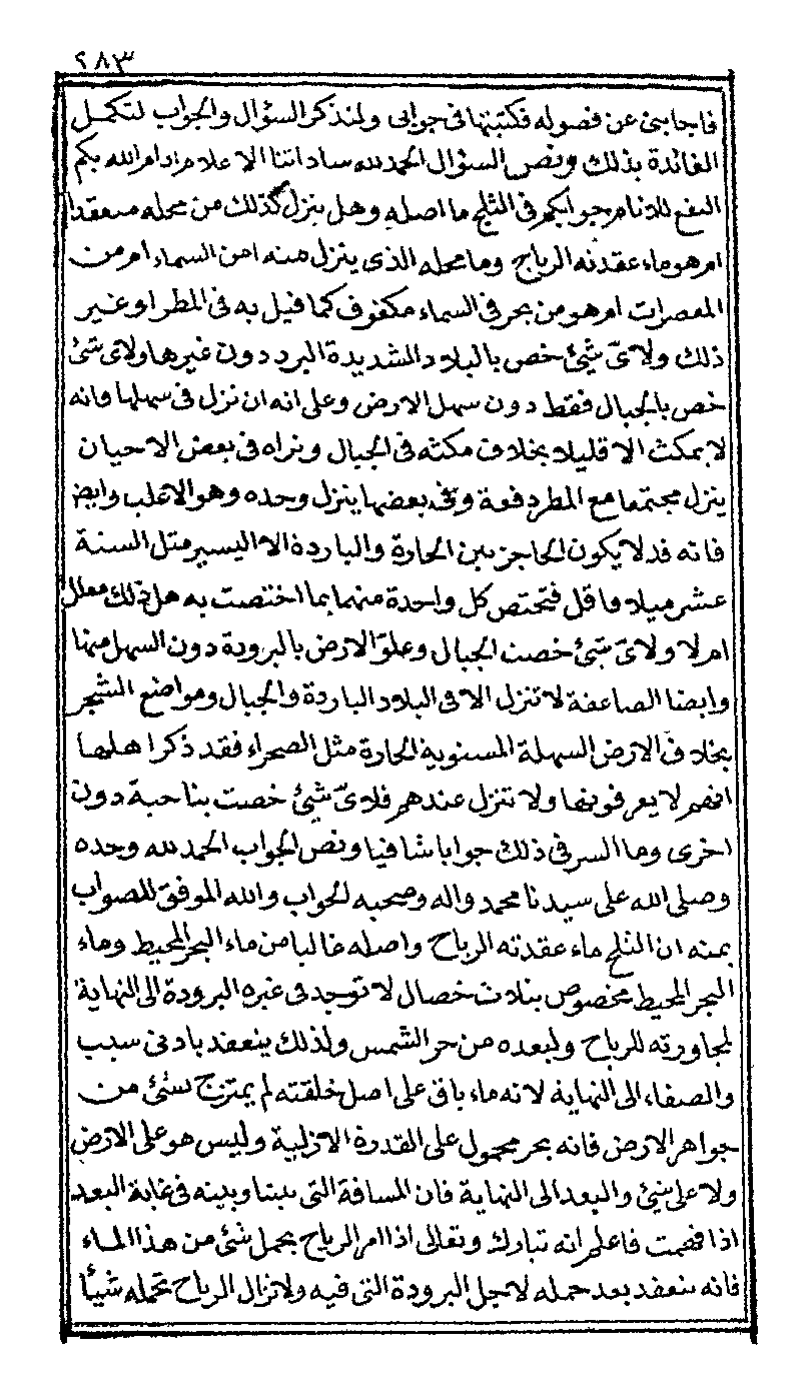 ٢٨٣
فاجابني عن فصوله فكتبتها في جوابي ولنذكر السؤال والجواب لتكمل
الفائدة بذلك ونص السؤال الحمد لله ساداتنا الاعلام ادام الله بكم
النفع للانام جوابكم في الثلج ما اصله وهل ينزل كذلك من محله منعقدا
ام هو ماء عقدته الرياح وما محله الذي ينزل منه امن السماء ام من
المعصرات ام هو من بحر في السماء مكفوف كما قيل به في المطر او غير
ذلك ولاىّ شئ خص بالبلاد الشديدة البرد دون غيرها ولاى شئ
خص بالجبال فقط دون سهل الارض وعلى انه ان نزل في سهلها فانه
لا يمكث الا قليلا بخلاف مكثه في الجبال ونراه في بعض الاحيان
ينزل مجتمعا مع المطر دفعة وفي بعضها ينزل وحده وهو الاغلب وايضا
فانه قد لا يكون الحاجز بين الحارة والباردة الا اليسير مثل الستة
عشر ميلا وما قل فتختص كل واحدة منهما بما اختصت به هل ذلك معلل
ام لا ولاىّ شئ خصت الجبال وعلوّ الارض بالبرودة دون السهل منها
وايضا الصاعقة لا تنزل الا في البلاد الباردة والجبال ومواضع الشجر
بخلاف الارض السهلة المستوية الحارة مثل الصحراء فقد ذكر اهلها
انهم لا يعرفونها ولا تنزل عندهم فلاىّ شئ خصت بناحية دون
اخرى وما السر في ذلك جوابا شافيا ونص الجواب الحمد لله وحده
وصلى الله على سيدنا محمد واله وصحبه الجواب والله الموفق للصواب
بمنه ان الثلج ماء عقدته الرياح واصله غالبا من ماء البحر المحيط وماء
البحر المحيط مخصوص بثلاث خصال لا توجد في غيره البرودة الى النهاية
لمجاورته للرياح ولبعده من حر الشمس ولذلك ينعقد بادنى سبب
والصفاء الى النهاية لانه ماء باق على اصل خلقته لم يمتزج بشئ من
جواهر الارض فانه بحر محمول على القدرة الازلية وليس هو على الارض
ولا على شئ والبعد الى النهاية فان المسافة التى بيننا وبينه في غاية البعد
اذا فهمت فاعلم انه تبارك وتعالى اذا امر الرياح بحمل شئ من هذا الماء
فانه ينعقد بعد حمله لاجل البرودة التى فيه ولا تزال الرياح تحمله شيأ